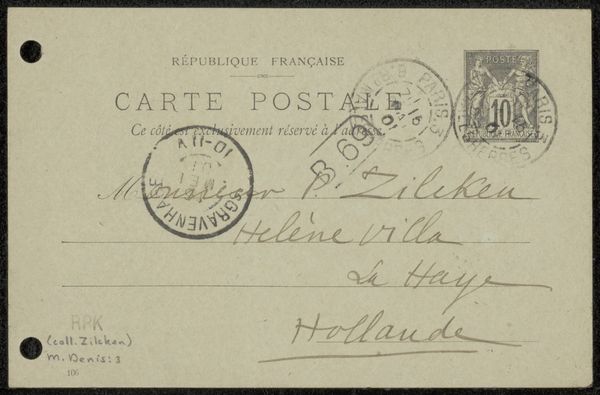 RÉPUBLIQUE FRANÇAISE
CARTE POSTALE
Ce côté est exclusivement réservé à l'adresse.
POSTES
10
REPUBLIQUE FRANÇAISE
PARIS
PARIS
B 69
'SGRAVENHAGE
10-11V
Monsieur P. Zilcken
Helène Villa
La Haye
Hollande
RPK
(coll. Zilcken)
M. Denis: 3
106